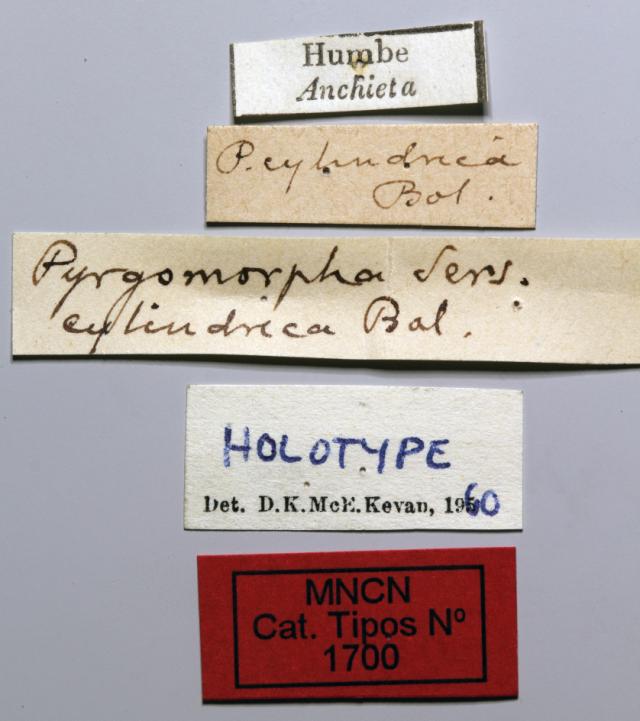 Humbe
Anchieta
P. cylindrica
Bol.
Pyrgomorpha Serv.
cylindrica Bol.
HOLOTYPE
Det. D.K.McE.Kevan, 1960
MNCN
Cat. Tipos Nº
1700